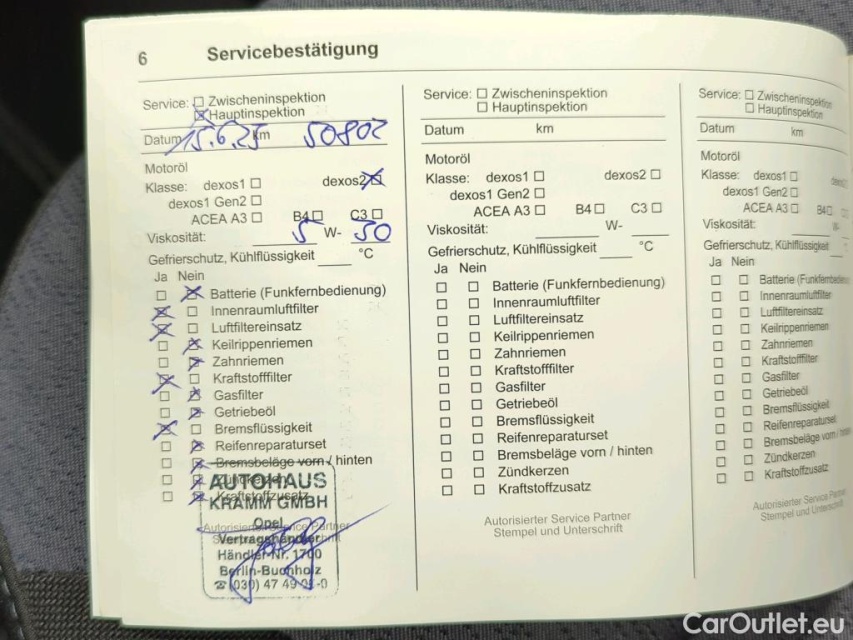 6 Servicebestätigung
Service: ☐ Zwischeninspektion
☒ Hauptinspektion
Datum 15.6.25 km 50802
Motoröl
Klasse: dexos1 ☐ dexos2 ☒
dexos1 Gen2 ☐
ACEA A3 ☐ B4 ☐ C3 ☐
Viskosität: 5 W- 30
Gefrierschutz, Kühlflüssigkeit ____ °C
Ja Nein
☐ ☒ Batterie (Funkfernbedienung)
☒ ☐ Innenraumluftfilter
☒ ☐ Luftfiltereinsatz
☐ ☒ Keilrippenriemen
☐ ☒ Zahnriemen
☒ ☐ Kraftstofffilter
☐ ☒ Gasfilter
☐ ☒ Getriebeöl
☒ ☐ Bremsflüssigkeit
☐ ☒ Reifenreparaturset
☐ ☒ Bremsbeläge vorn / hinten
☐ ☒ Zündkerzen
☐ ☒ Kraftstoffzusatz
Autorisierter Service Partner
AUTOHAUS
KRAMM GMBH
Opel
Vertragshändler
Händler-Nr. 1700
Berlin-Buchholz
☎ (030) 47 49 05-0
Service: ☐ Zwischeninspektion
☐ Hauptinspektion
Datum km
Motoröl
Klasse: dexos1 ☐ dexos2 ☐
dexos1 Gen2 ☐
ACEA A3 ☐ B4 ☐ C3 ☐
Viskosität: ____ W- ____
Gefrierschutz, Kühlflüssigkeit ____ °C
Ja Nein
☐ ☐ Batterie (Funkfernbedienung)
☐ ☐ Innenraumluftfilter
☐ ☐ Luftfiltereinsatz
☐ ☐ Keilrippenriemen
☐ ☐ Zahnriemen
☐ ☐ Kraftstofffilter
☐ ☐ Gasfilter
☐ ☐ Getriebeöl
☐ ☐ Bremsflüssigkeit
☐ ☐ Reifenreparaturset
☐ ☐ Bremsbeläge vorn / hinten
☐ ☐ Zündkerzen
☐ ☐ Kraftstoffzusatz
Autorisierter Service Partner
Stempel und Unterschrift
Service: ☐ Zwischeninspektion
☐ Hauptinspektion
Datum km
Motoröl
Klasse: dexos1 ☐
dexos1 Gen2 ☐
ACEA A3 ☐ B4 ☐
Viskosität: ____ W-
Gefrierschutz, Kühlflüssigkeit
Ja Nein
☐ ☐ Batterie (Funkfernbedienung
☐ ☐ Innenraumluftfilter
☐ ☐ Luftfiltereinsatz
☐ ☐ Keilrippenriemen
☐ ☐ Zahnriemen
☐ ☐ Kraftstofffilter
☐ ☐ Gasfilter
☐ ☐ Getriebeöl
☐ ☐ Bremsflüssigkeit
☐ ☐ Reifenreparaturset
☐ ☐ Bremsbeläge vorn /
☐ ☐ Zündkerzen
☐ ☐ Kraftstoffzusatz
Autorisierter Service Partner
Stempel und Unterschrift
CarOutlet.eu